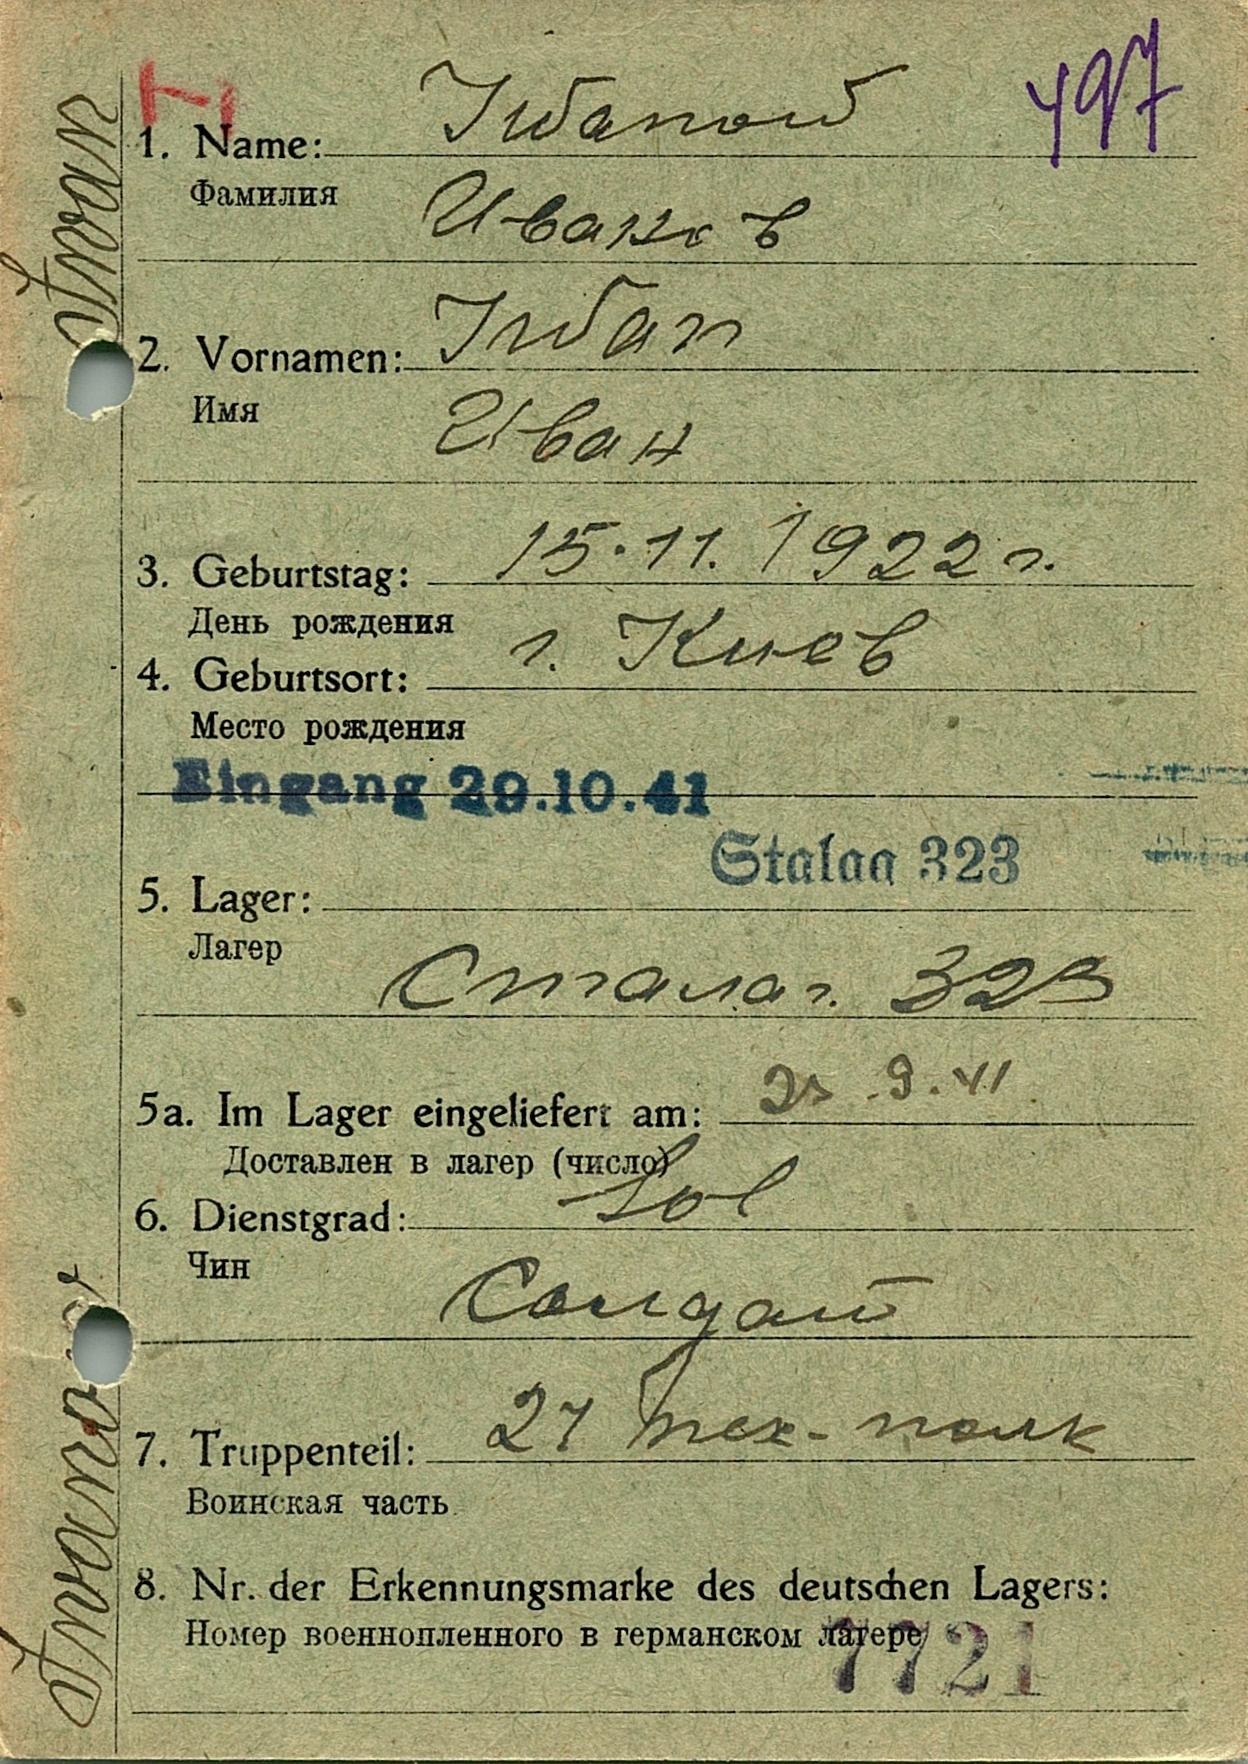 497
1. Name: Iwanow
Фамилия Иванов
2. Vornamen: Iwan
Имя Иван
3. Geburtstag: 15.11.1922 г.
День рождения
4. Geburtsort: г. Киев
Место рождения
Eingang 29.10.41
Stalag 323
5. Lager:
Лагер
Сталаг. 323
5a. Im Lager eingeliefert am: .9.41
Доставлен в лагер (число)
6. Dienstgrad: Sol
Чин Солдат
7. Truppenteil: тех-полк
Воинская часть
8. Nr. der Erkennungsmarke des deutschen Lagers:
Номер военнопленного в германском лагере
7721
Iwan
Iwanow